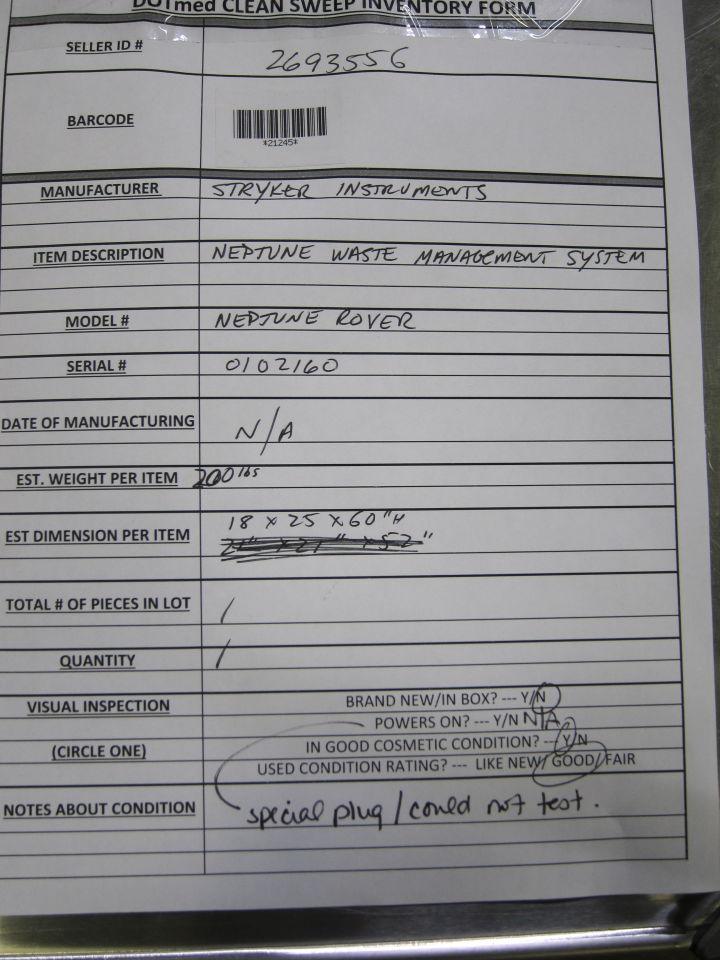 DOTmed CLEAN SWEEP INVENTORY FORM
SELLER ID # 2693556
BARCODE
*21245*
MANUFACTURER STRYKER INSTRUMENTS
ITEM DESCRIPTION NEPTUNE WASTE MANAGEMENT SYSTEM
MODEL # NEPTUNE ROVER
SERIAL # 0102160
DATE OF MANUFACTURING N/A
EST. WEIGHT PER ITEM 200 lbs
18 x 25 x 60"H
EST DIMENSION PER ITEM
TOTAL # OF PIECES IN LOT 1
QUANTITY 1
VISUAL INSPECTION BRAND NEW/IN BOX? --- Y/N
POWERS ON? --- Y/N N/A
(CIRCLE ONE) IN GOOD COSMETIC CONDITION? --- Y/N
USED CONDITION RATING? --- LIKE NEW/ GOOD/ FAIR
NOTES ABOUT CONDITION special plug / could not test.